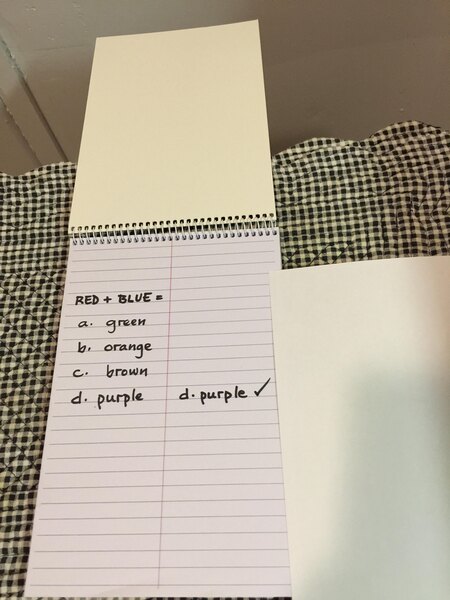 RED + BLUE =
a. green
b. orange
c. brown
d. purple d. purple ✓